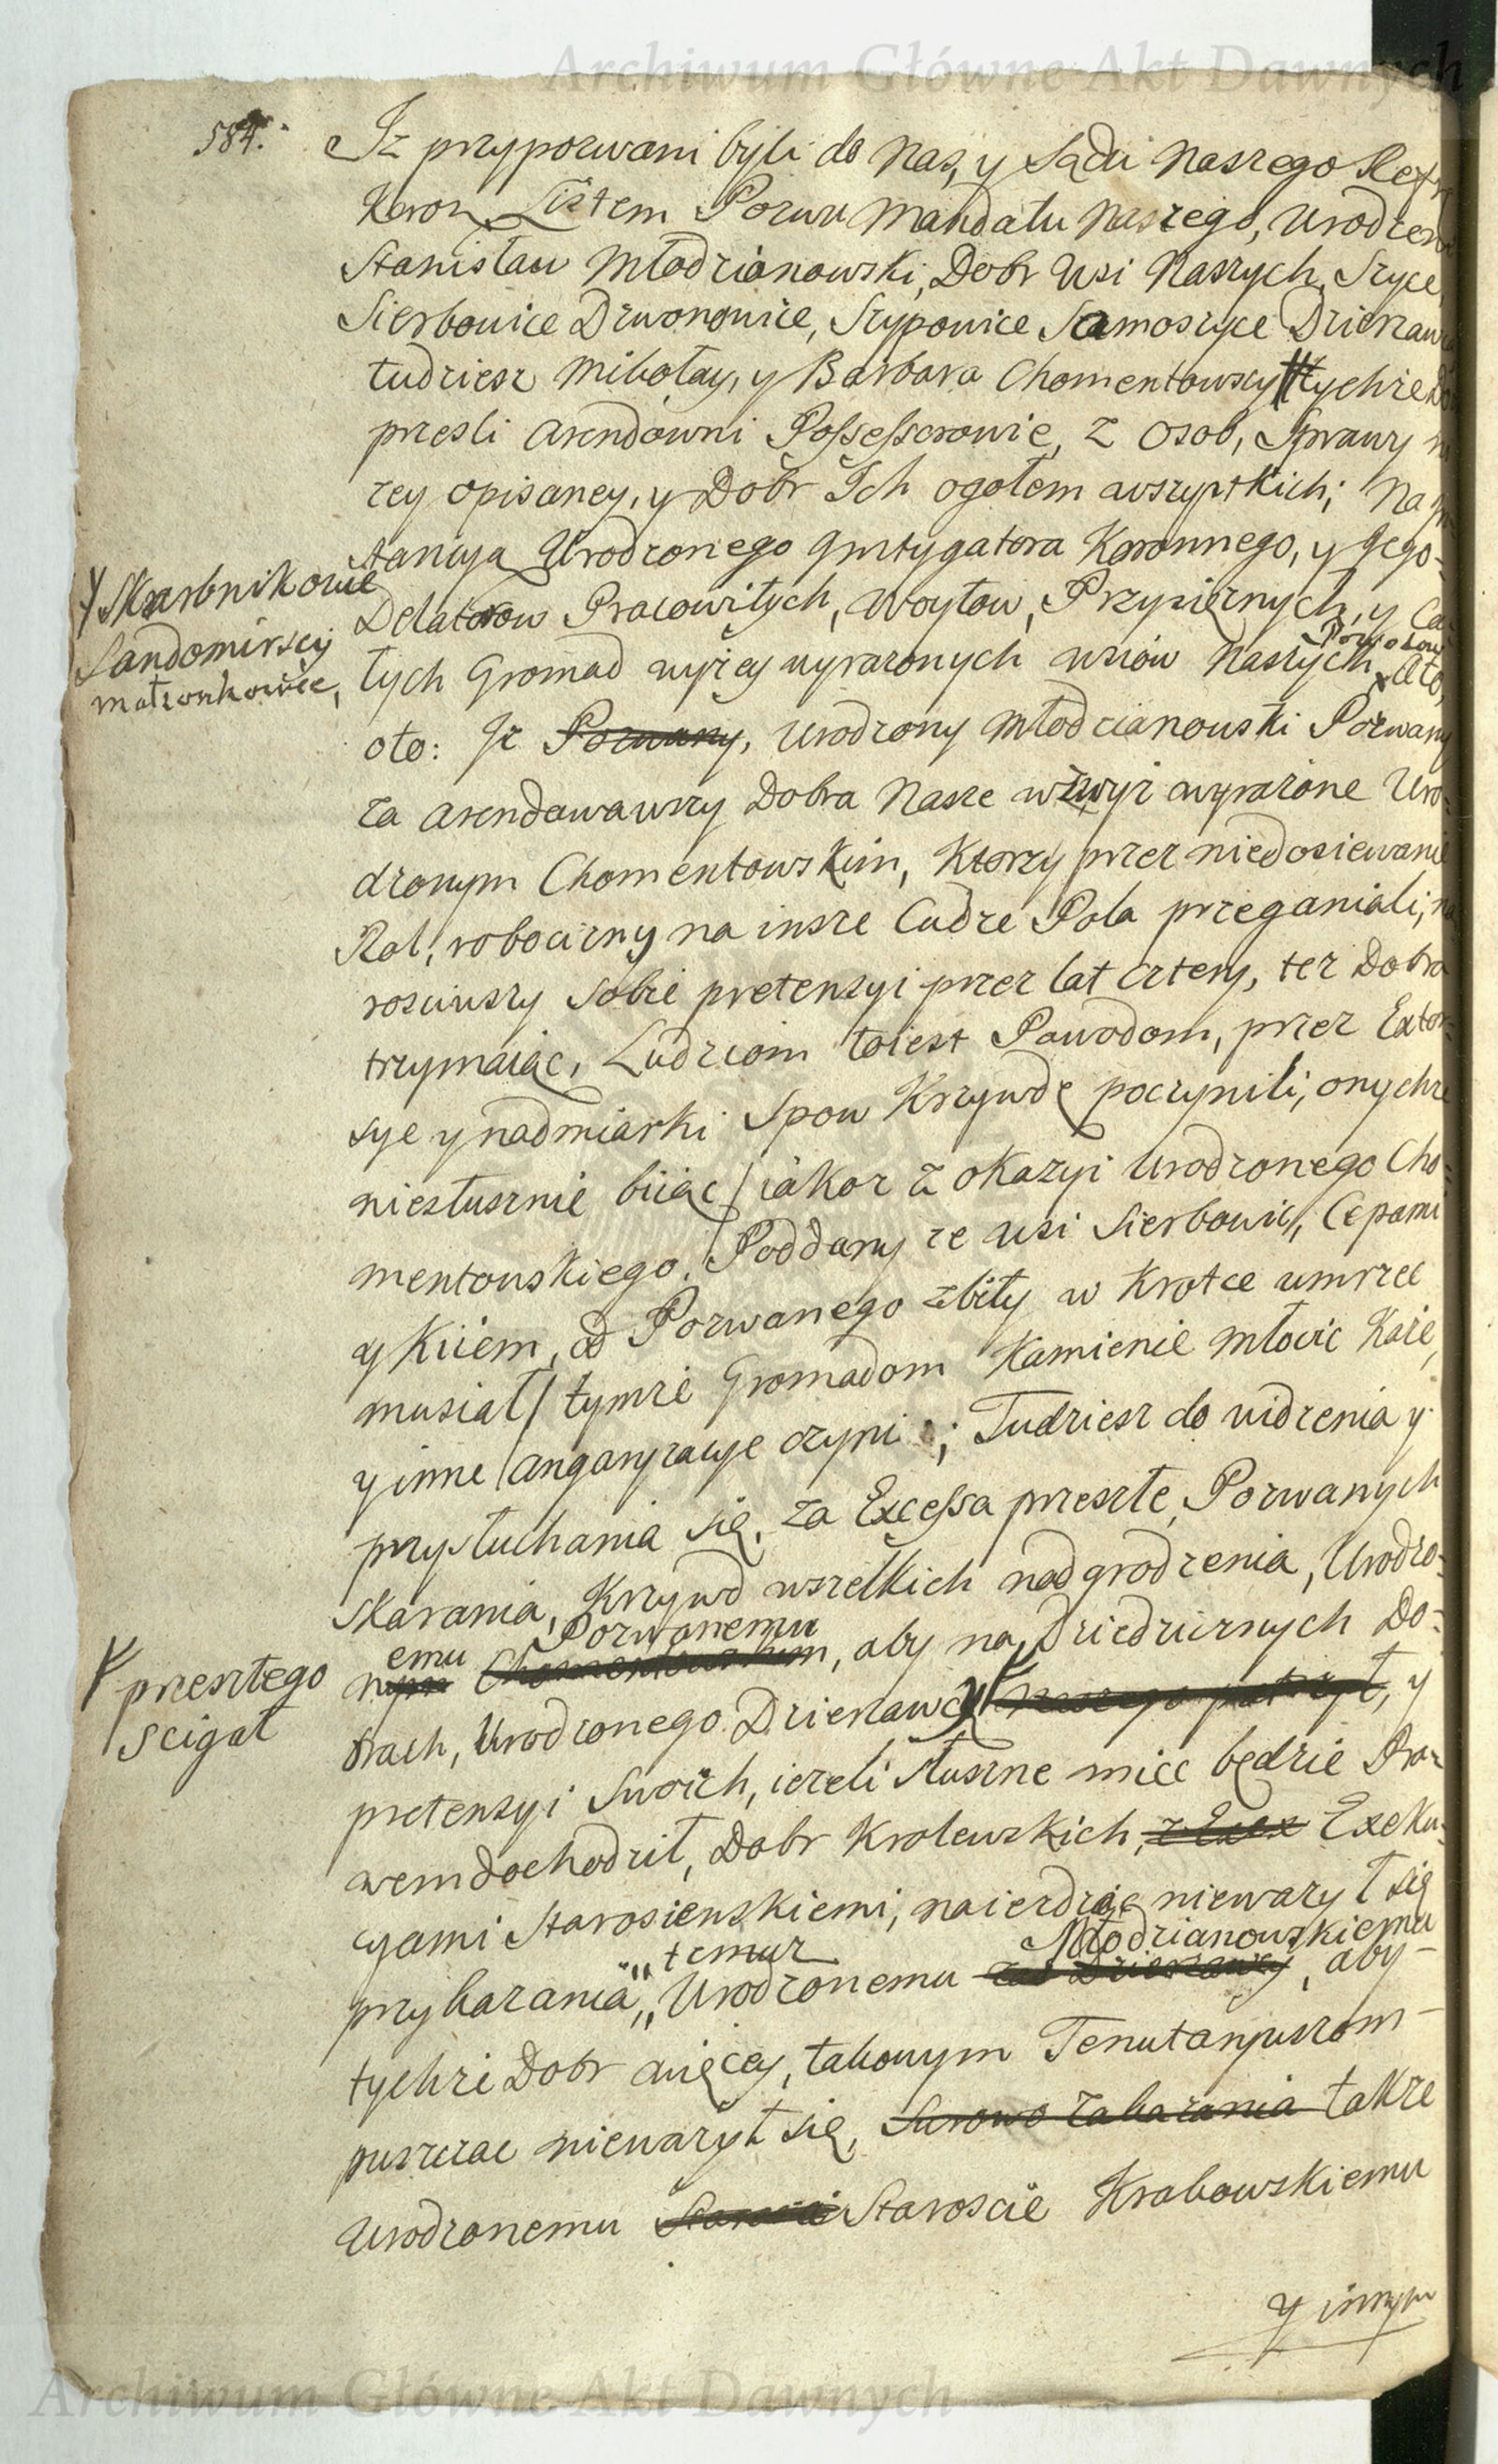 Archiwum Główne Akt Dawnych
584. Iz przypozwani byli do Nas, y Sądu Naszego Refre
Koron Listem Pozwu Mandatu Naszego, Urodzeni
Stanisław Młodzianowski, Dobr Wsi Naszych, Szyce,
Sierbowice Dzwonowice, Szypowice Samoszyce Dzierzawca
tudziesz Mikołay, y Barbara Chomentowscy tychże Dobr
przeszli arendowni Possessorowie, z Osob, Sprawy
zey opisaney, y Dobr Ich ogołem wszystkich; Na
stancya Urodzonego Instygatora Koronnego, y Jego
Y Skarbnikowie
Sandomirscy
małżonkowie,
Delatorow Pracowitych, Woytow, Przysiężnych, y Ca
Powodow
łych Gromad wyżey wyrazonych wsiow Naszych, Oto,
oto: Iż Pozwany, Urodzony Młodzianowski Pozwany
za arendowawszy Dobra Nasze wzwyż wyrażone Uro-
dzonym Chomentowskim, Ktorzy przez niedosiewanie
Rol, robocizny na insze Cudze Pola przeganiali, na
rosciwszy sobie pretensyi przez lat cztery, też Dobra
trzymaiąc, Ludziom toiest Powodom, przez Extor-
sye y nadmiarki Spow Krzywdę poczynili, onychże
niesłusznie biiąc / iakoż z okazyi Urodzonego Cho-
mentowskiego, Poddany ze wsi Sierbowic, Cepami
y Kiiem, od Pozwanego zbity w Krotce umrzec
musiał / tymże Gromadom Kamienie młocic Każe,
y inne angaryzacye czyni; Tudziesz do widzenia y
przysłuchania się, za Excessa przeszłe, Pozwanych
Skarania, Krzywd wszelkich nadgrodzenia, Urodzo-
emu Pozwanemu
nym Chomentowskim, aby na Dziedzicznych Do-
przeszłego
scigał
brach, Urodzonego Dzierzawcy, y
pretensyi Swoich, ieżeli słuszne miec będzie Pra-
wem dochodził, Dobr Krolewskich, z Exex Exeku-
cyami Starosienskiemi, naieżdżąc nieważył się
temuż Młodzianowskiemu
przykazania, Urodzonemu zas Dzierzawcy, aby
tychże Dobr więcey, takowym Tenutaryuszom
puszczac nieważył się, Surowo zakazania także
Urodzonemu Staroscie Staroscie Krakowskiemu
y innym
Archiwum Główne Akt Dawnych